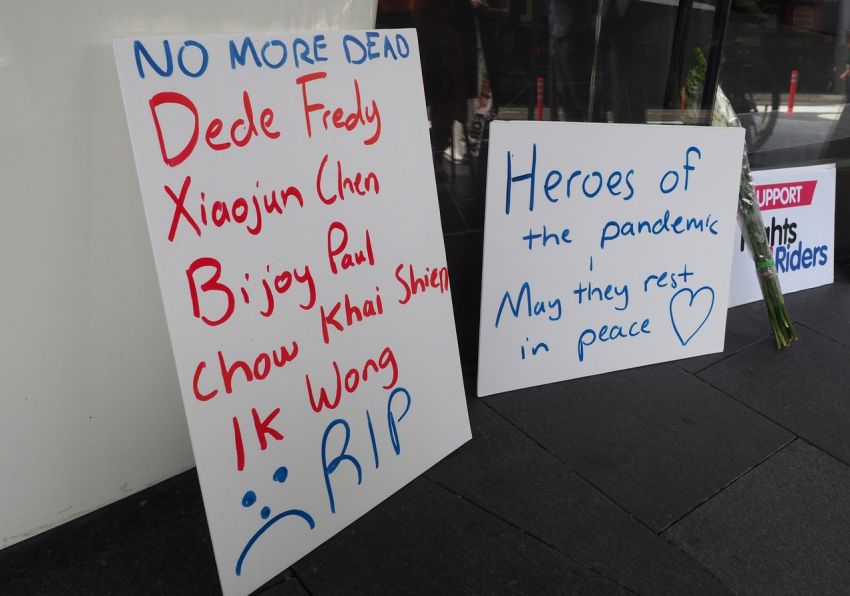 NO MORE DEAD
Dede Fredy
Xiaojun Chen
Bijoy Paul
Chow Khai Shien
IK Wong
RIP
Heroes of
the pandemic
May they rest
in peace
UPPORT
ghts
Riders